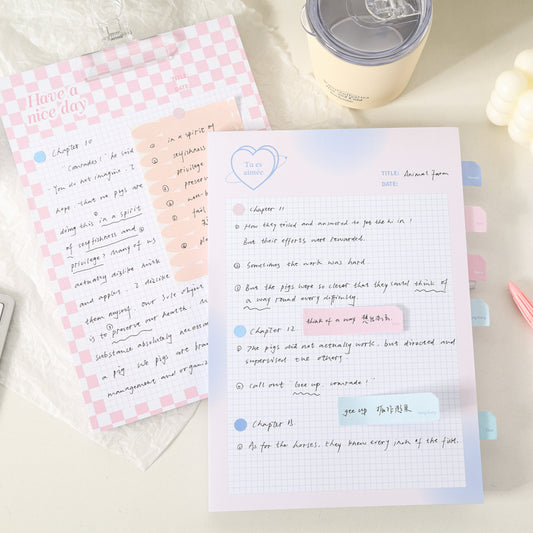 Have a
nice day
TITLE:
DATE:
Chapter 10
"Comrades!" he said
You do not imagine, I
hope, that we pigs are
doing this in a spirit
of selfishness and
privilege? Many of us
actually dislike milk
and apples. I dislike
them myself. Our sole object
is to preserve our health. M
substance absolutely necess
a pig. We pigs are brai
management and organi
in a spirit
selfishness
privilege
preser
non-
fai
ple
Tu es
aimée
TITLE: Animal farm
DATE:
Chapter 11
① How they toiled and
to get the h in!
But their efforts were rewarded.
② Sometimes the work was hard.
③ But the pigs were so clever that they could think of
a way round every difficulty.
think of a way 想出办法
Chapter 12
① The pigs did not actually work, but directed and
supervised the others
② call out "Gee up, comrade!"
gee up
Chapter 13
① As for the horses, they knew every inch of the field.